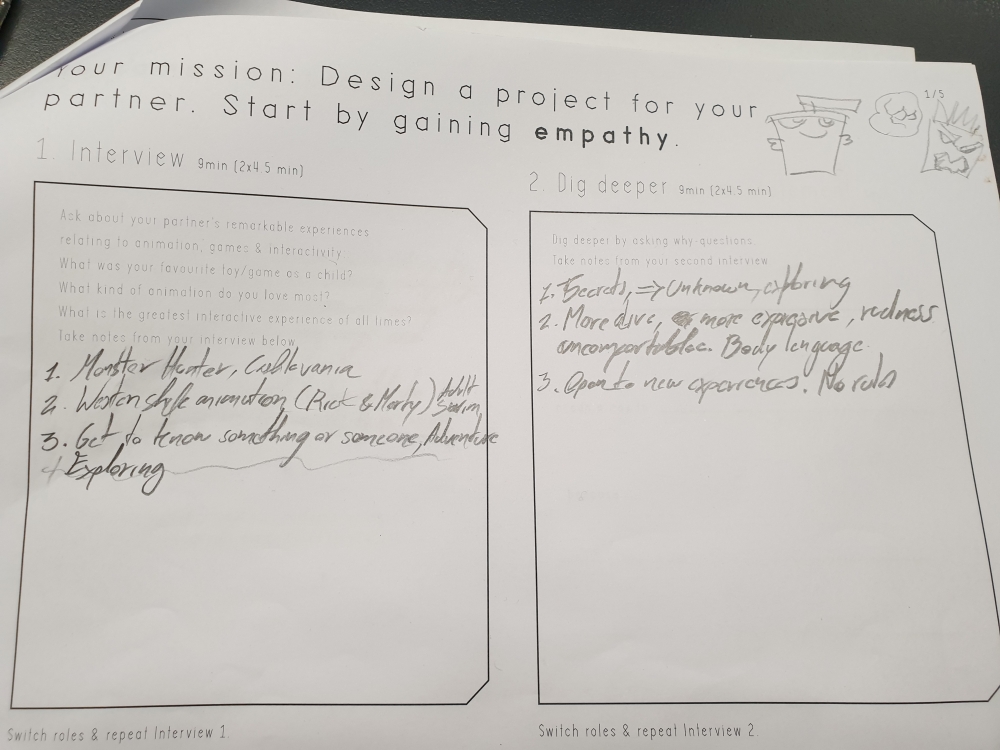 Your mission: Design a project for your
partner. Start by gaining empathy.
1/5
1. Interview 9min (2x4.5 min)
Ask about your partner's remarkable experiences
relating to animation, games & interactivity
What was your favourite toy/game as a child?
What kind of animation do you love most?
What is the greatest interactive experience of all times?
Take notes from your interview below
1. Monster Hunter, Castlevania
2. Western style animation, (Rick & Morty) Adult Swim
3. Get to know something or someone, Adventure
+ Exploring
Switch roles & repeat Interview 1.
2. Dig deeper 9min (2x4.5 min)
Dig deeper by asking why-questions
Take notes from your second interview
1. Secrets, => Unknown, exploring
2. More alive, more expressive,
Body language
3. Open to new experiences. No rules
Switch roles & repeat Interview 2.